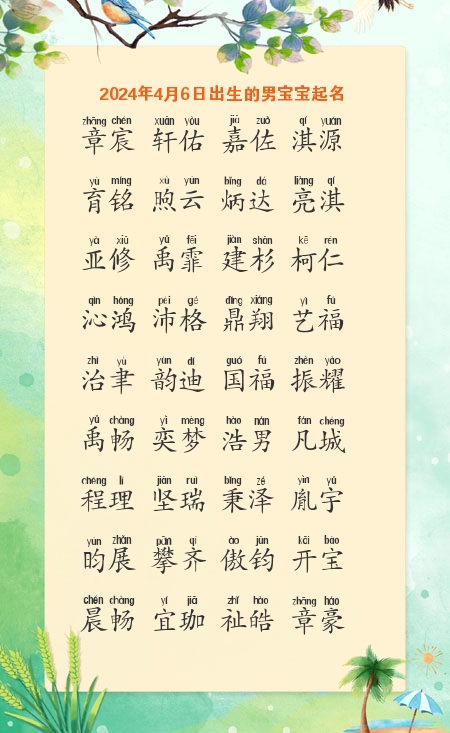 2024年4月6日出生的男宝宝起名
zhāng chén xuān yòu jiā zuǒ qí yuán
章宸 轩佑 嘉佐 淇源
yù míng xù yún bǐng dá liàng qí
育铭 煦云 炳达 亮淇
yà xiū yǔ fēi jiàn shān kē rén
亚修 禹霏 建杉 柯仁
qìn hóng pèi gé dǐng xiáng yì fú
沁鸿 沛格 鼎翔 艺福
zhì yù yùn dí guó fú zhèn yào
治聿 韵迪 国福 振耀
yǔ chàng yì mèng hào nán fán chéng
禹畅 奕梦 浩男 凡城
chéng lǐ jiān ruì bǐng zé yìn yǔ
程理 坚瑞 秉泽 胤宇
yún zhǎn pān qí ào jūn kāi bǎo
昀展 攀齐 傲钧 开宝
chén chàng yí jiā zhǐ hào zhāng háo
晨畅 宜珈 祉皓 章豪